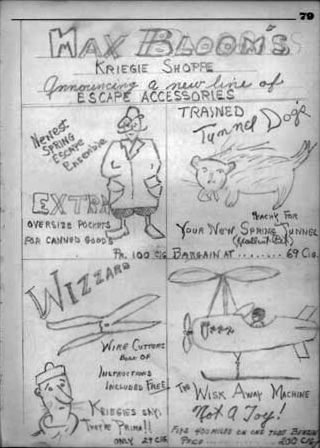 79
MAX BLOOM'S
KRIEGIE SHOPPE
Announcing a new line of
ESCAPE ACCESSORIES
Newest
SPRING
ESCAPE
Ensemble
EXTRA
OVERSIZE POCKETS
FOR CANNED GOODS
PR. 100 CIG
TRAINED
Tunnel Dogs
FOR
YOUR NEW SPRING TUNNEL
BARGAIN AT ........ 69 CIG.
WIZZARD
WIRE CUTTERS
BOOK OF
INSTRUCTIONS
INCLUDED FREE
KRIEGIES SAY,
THEY'RE PRIMA!!
ONLY 29 CIG
THE WISK AWAY MACHINE
Not A Toy!
FLYS 400 MILES ON ONE TUBE BENZIN
PRICE 200 CIG.